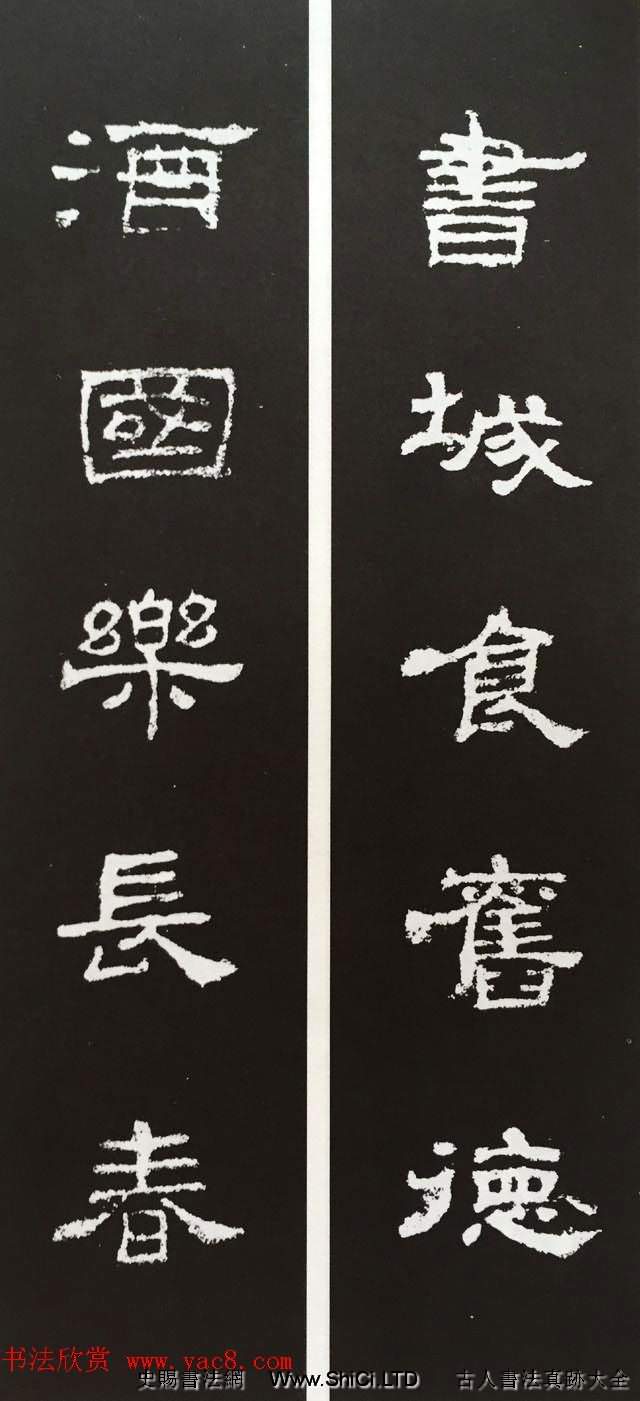 書城食舊德
酒國樂長春
书法欣赏 www.yac8.com
史賜書法網 Www.ShiCi.LTD 古人書法真跡大全